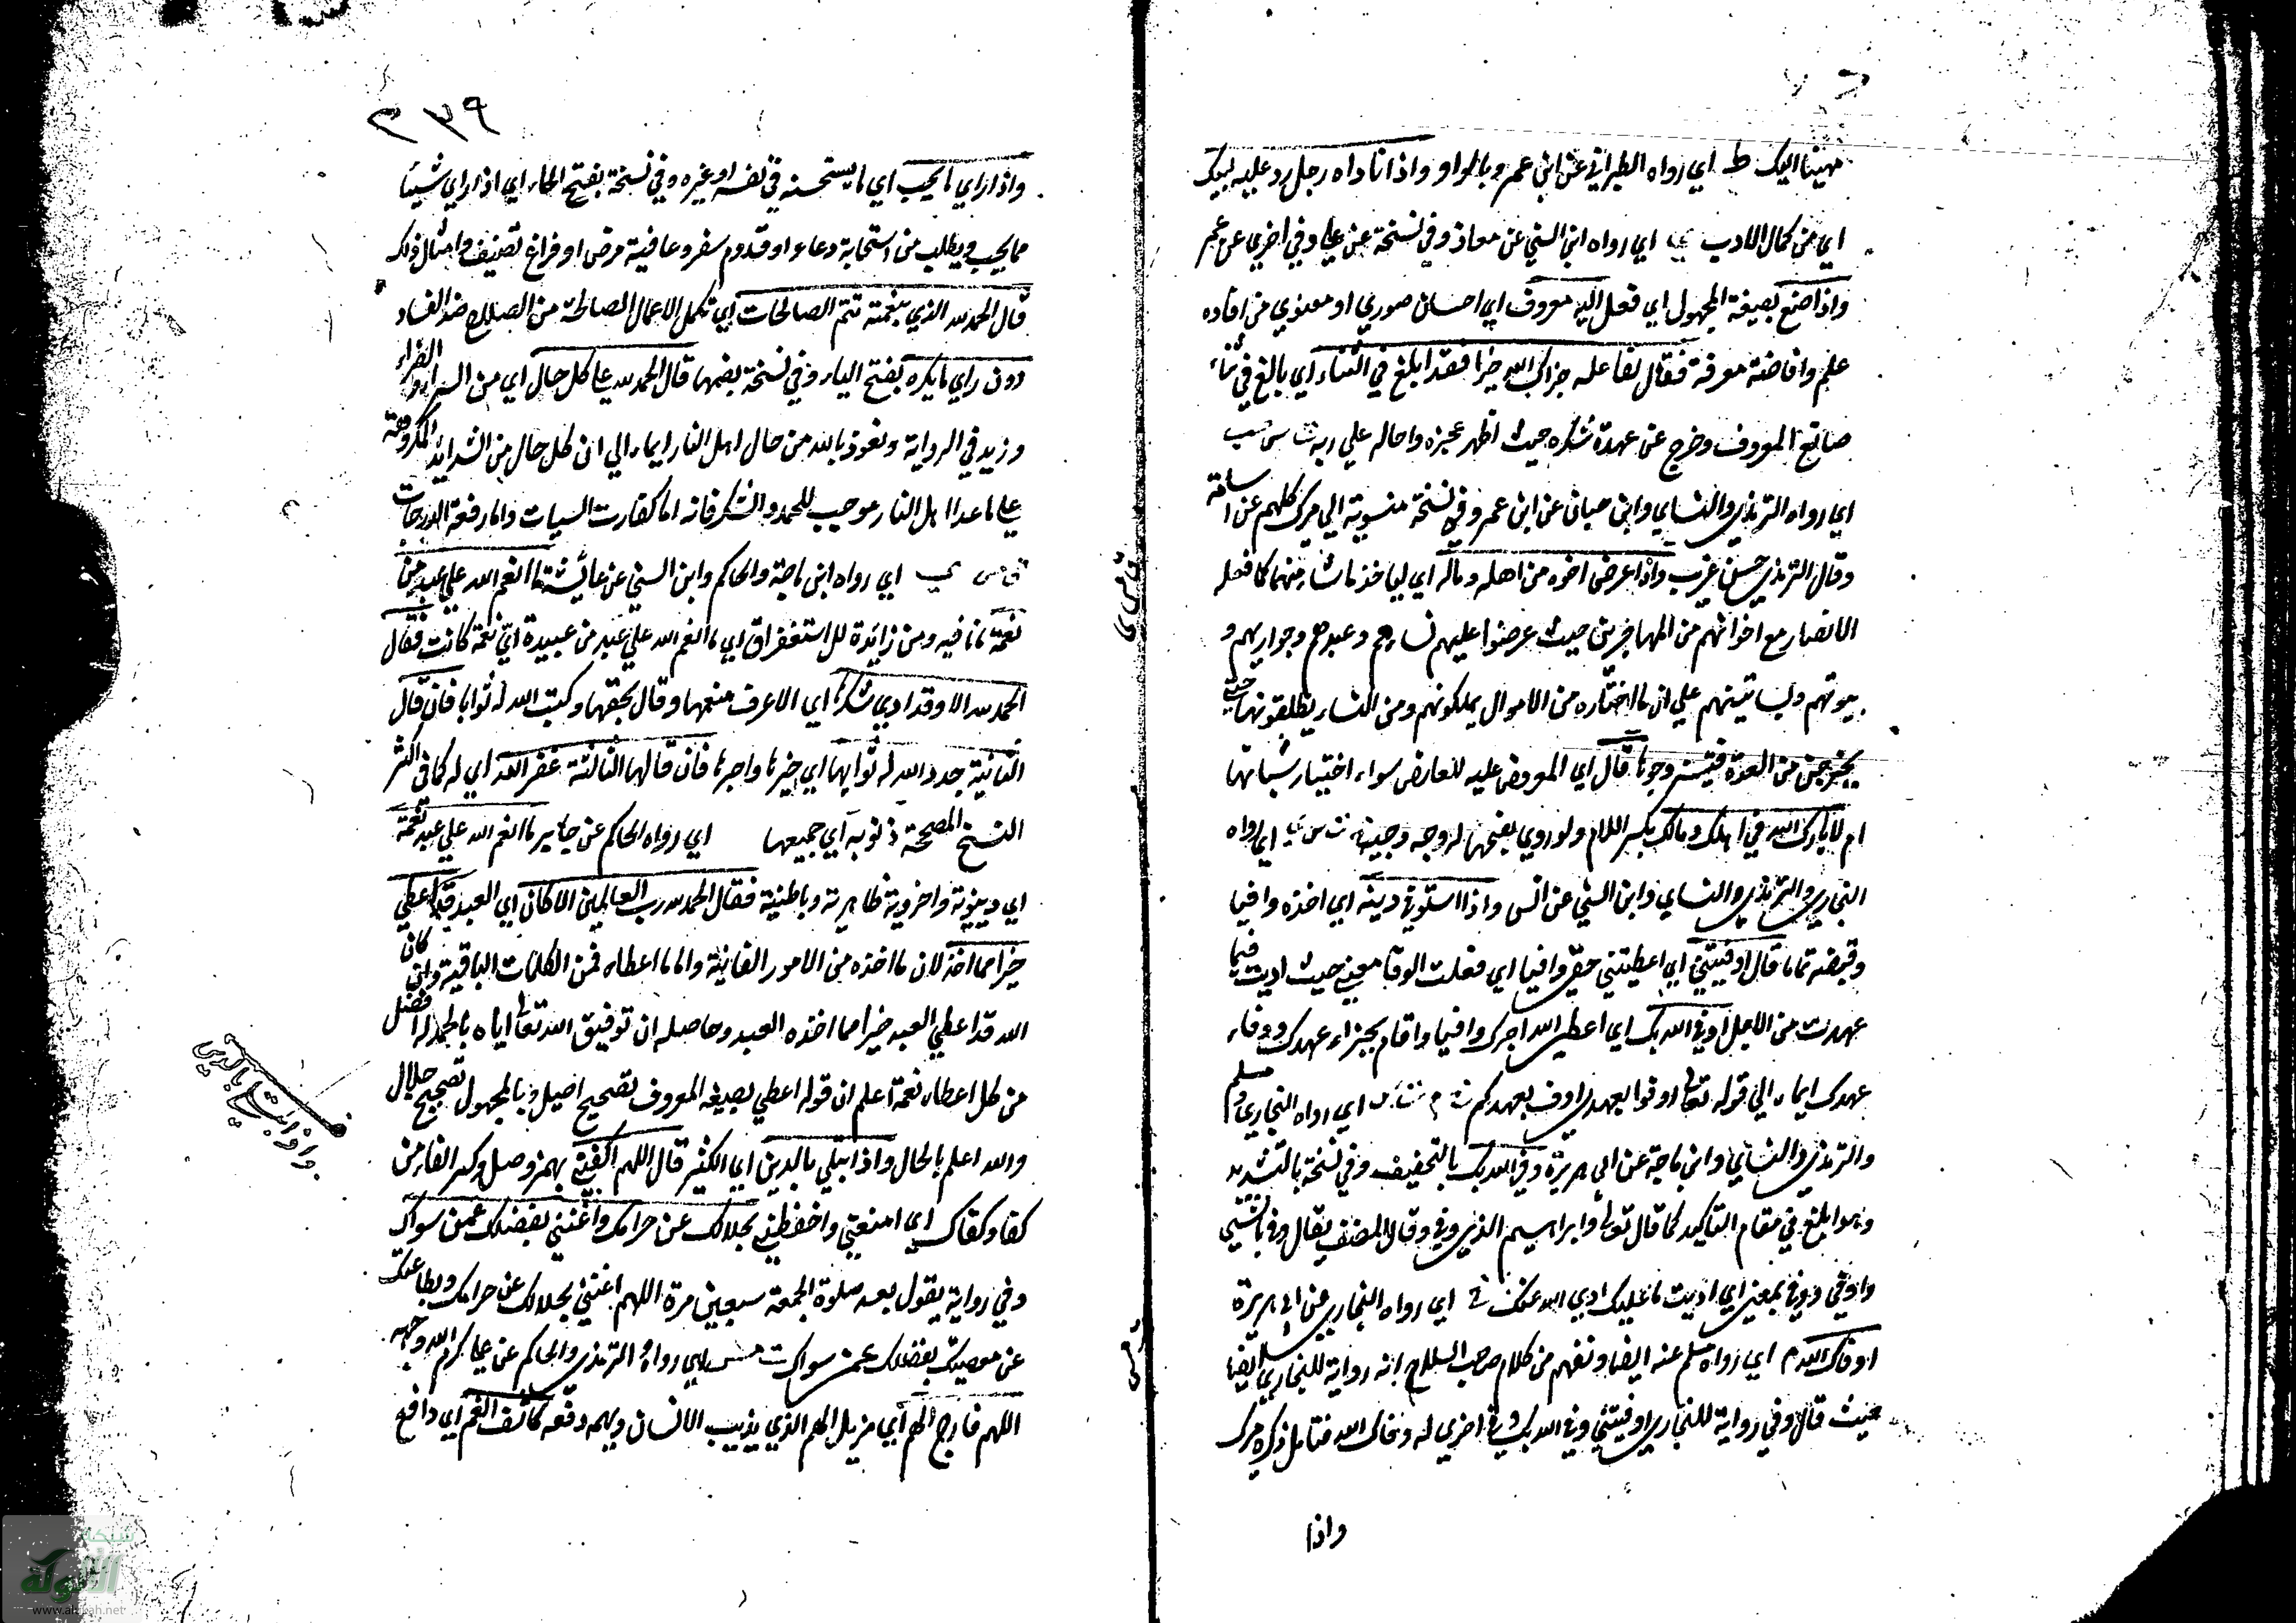 مهينا اليك ط اي رواه الطبراني عن ابن عمر وبالواو واذا ناداه رجل رد عليه لبيك
اي من كمال الادب ي اي رواه ابن السني عن معاذ وفي نسخة عن علي وفي اخري عن عمر
واذا صنع بصيغة المجهول اي فعل اليه معروف اي احسان صوري او معنوي من افادة
علم وافاضة معرفة فقال لفاعله جزاك الله خيرا فقد ابلغ في الثناء اي بالغ في ثناء
صانع المعروف وخرج عن عهدة شكره حيث اظهر عجزه واحاله علي ربه ت س حب
اي رواه الترمذي والنساي وابن حبان عن ابن عمر وفي نسخة منسوبة الي ميرك كلهم عن اسامة
وقال الترمذي حسن غريب واذا عرض اخوه من اهله وماله اي لياخذ ما شاء منهما كما فعله
الانصار مع اخوانهم من المهاجرين حيث عرضوا عليهم نساءهم وعبيدهم وجواريهم و
بيوتهم وبساتينهم علي ان ما اختاره من الاموال يملكونهم ومن النساء يطلقونها حتي
يخرجن من العدة فيتزوجوها قال اي المعروض عليه للعارض سواء اختيار شيا منها
ام لا بارك الله في اهلك ومالك بكسر اللام ولو روي بفتحها له وجه وجيه خ ت س ي اي رواه
البخاري والترمذي والنساي وابن السني عن انس واذا استوفي دينه اي اخذه وافيا
وقبضه تماما قال اوفيتني اي اعطيتني حقي وافيا اي فعلت الوفا معي حيث اديت فيما
عهدت من الاجل اوفي الله بك اي اعطي الله اجرك وافيا واقام بجزاء عهدك ووفاء
عهدك ايماء الي قوله تعالي اوفوا بعهدي اوف بعهدكم خ م ت س ق اي رواه البخاري ومسلم
والترمذي والنساي وابن ماجة عن ابي هريرة وفي الله بك بالتخفيف وفي نسخة بالتشديد
وهو ابلغ في مقام التاكيد كما قال تعالي وابراهيم الذي وفي وقال المصنف يقال وفي بالشيي
واوفي ووفي بمعني اي اديت ما عليك ادي الله عنك خ اي رواه البخاري عن ابي هريرة
اوفاك الله م اي رواه مسلم عنه ايضا ويفهم من كلام صاحب السلاح انه رواية للبخاري ايضا
حيث قال وفي رواية للبخاري اوفيتني وفي الله بك وفي اخري له وفاك الله فتامل ذكره ميرك
واذا
٢٣٩
واذا راي ما يحب اي ما يستحسنه في نفسه او غيره وفي نسخة بفتح الحاء اي اذا راي شيئا
مما يحب ويطلب من استجابة دعاء او قدوم سفر وعافية مرض او فراغ تصنيف وامثال ذلك
قال الحمد لله الذي بنعمته تتم الصالحات اي تكمل الاعمال الصالحة من الصلاح ضد الفساد
دون راي ما يكره بفتح الياء وفي نسخة بضمها قال الحمد لله علي كل حال اي من السراء والضراء
وزيد في الرواية ونعوذ بالله من حال اهل النار ايماء الي ان كل حال من الشدائد المكروهة
علي ما عدا اهل النار موجب للحمد والشكر فانه اما كفارت السيات واما رفعة الدرجات
ق مس ي اي رواه ابن ماجة والحاكم وابن السني عن عائشة ما انعم الله علي عبد من
نعمة ما نافيه ومن زائدة للاستغراق اي ما انعم الله علي عبد من عبيده اي نعمة كانت فقال
الحمد لله الا وقد ادي شكرها اي الا عرف منعمها وقال بحقها وكتب الله له ثوابا فان قال
الثانية جدد الله له ثوابها اي خيرها واجرها فان قالها الثالثة غفر الله اي له كما في اكثر
النسخ المصححة ذنوبه اي جميعها اي رواه الحاكم عن جابر ما انعم الله علي عبد نعمة
اي دينوية واخروية ظاهرية وباطنية فقال الحمد لله رب العالمين الا كان اي العبد قد اعطي
خيرا مما اخذ لان ما اخذه من الامور الفانية واما ما اعطاه فمن الكلمات الباقية وان كان
الله قد اعطي العبد خيرا مما اخذه العبد وحاصله ان توفيق الله تعالي اياه بالحمد له افضل
من كل اعطاء نعمة اعلم ان قوله اعطي بصيغة المعروف تصحيح اصيل وبالمجهول تصحيح جلال
والله اعلم بالحال واذا ابتلي بالدين اي الكثير قال اللهم اكفني بهمز وصل وكسر الفاء من
كفا وكفاك اي امنعني واحفظني بحلالك عن حرامك واغنني بفضلك عمن سواك
وفي رواية يقول بعد صلوة الجمعة سبعين مرة اللهم اغنني بحلالك عن حرامك وبطاعتك
عن معصيتك بفضلك عمن سواك ت مس اي رواه الترمذي والحاكم عن علي كرم الله وجهه
اللهم فارج الهم اي مزيل الهم الذي يذيب الانسان ويهمه دفعه كاشف الغم اي دافع
واذا ابتلي بالدين
شبكة
الألوكة
www.alukah.net